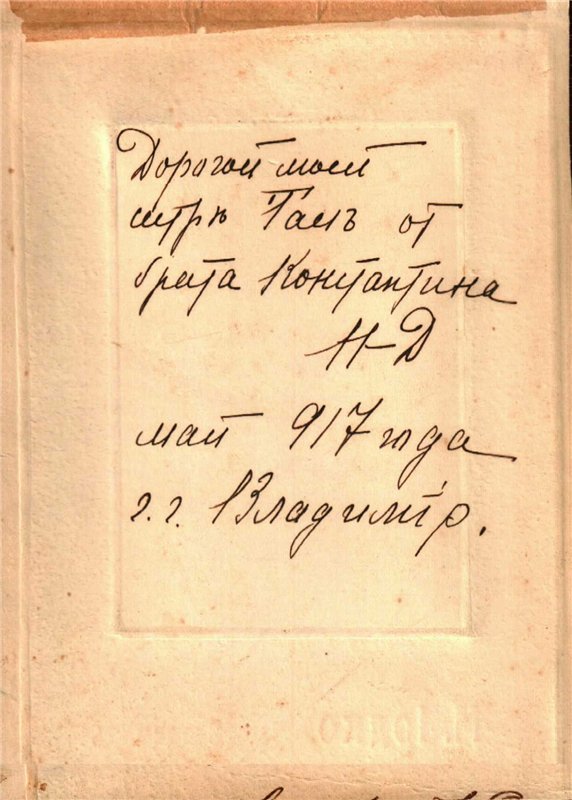 Дорогой моей
сестрѣ Ганѣ от
брата Константина
Н-Д
май 917 года
г. г. Владимір.